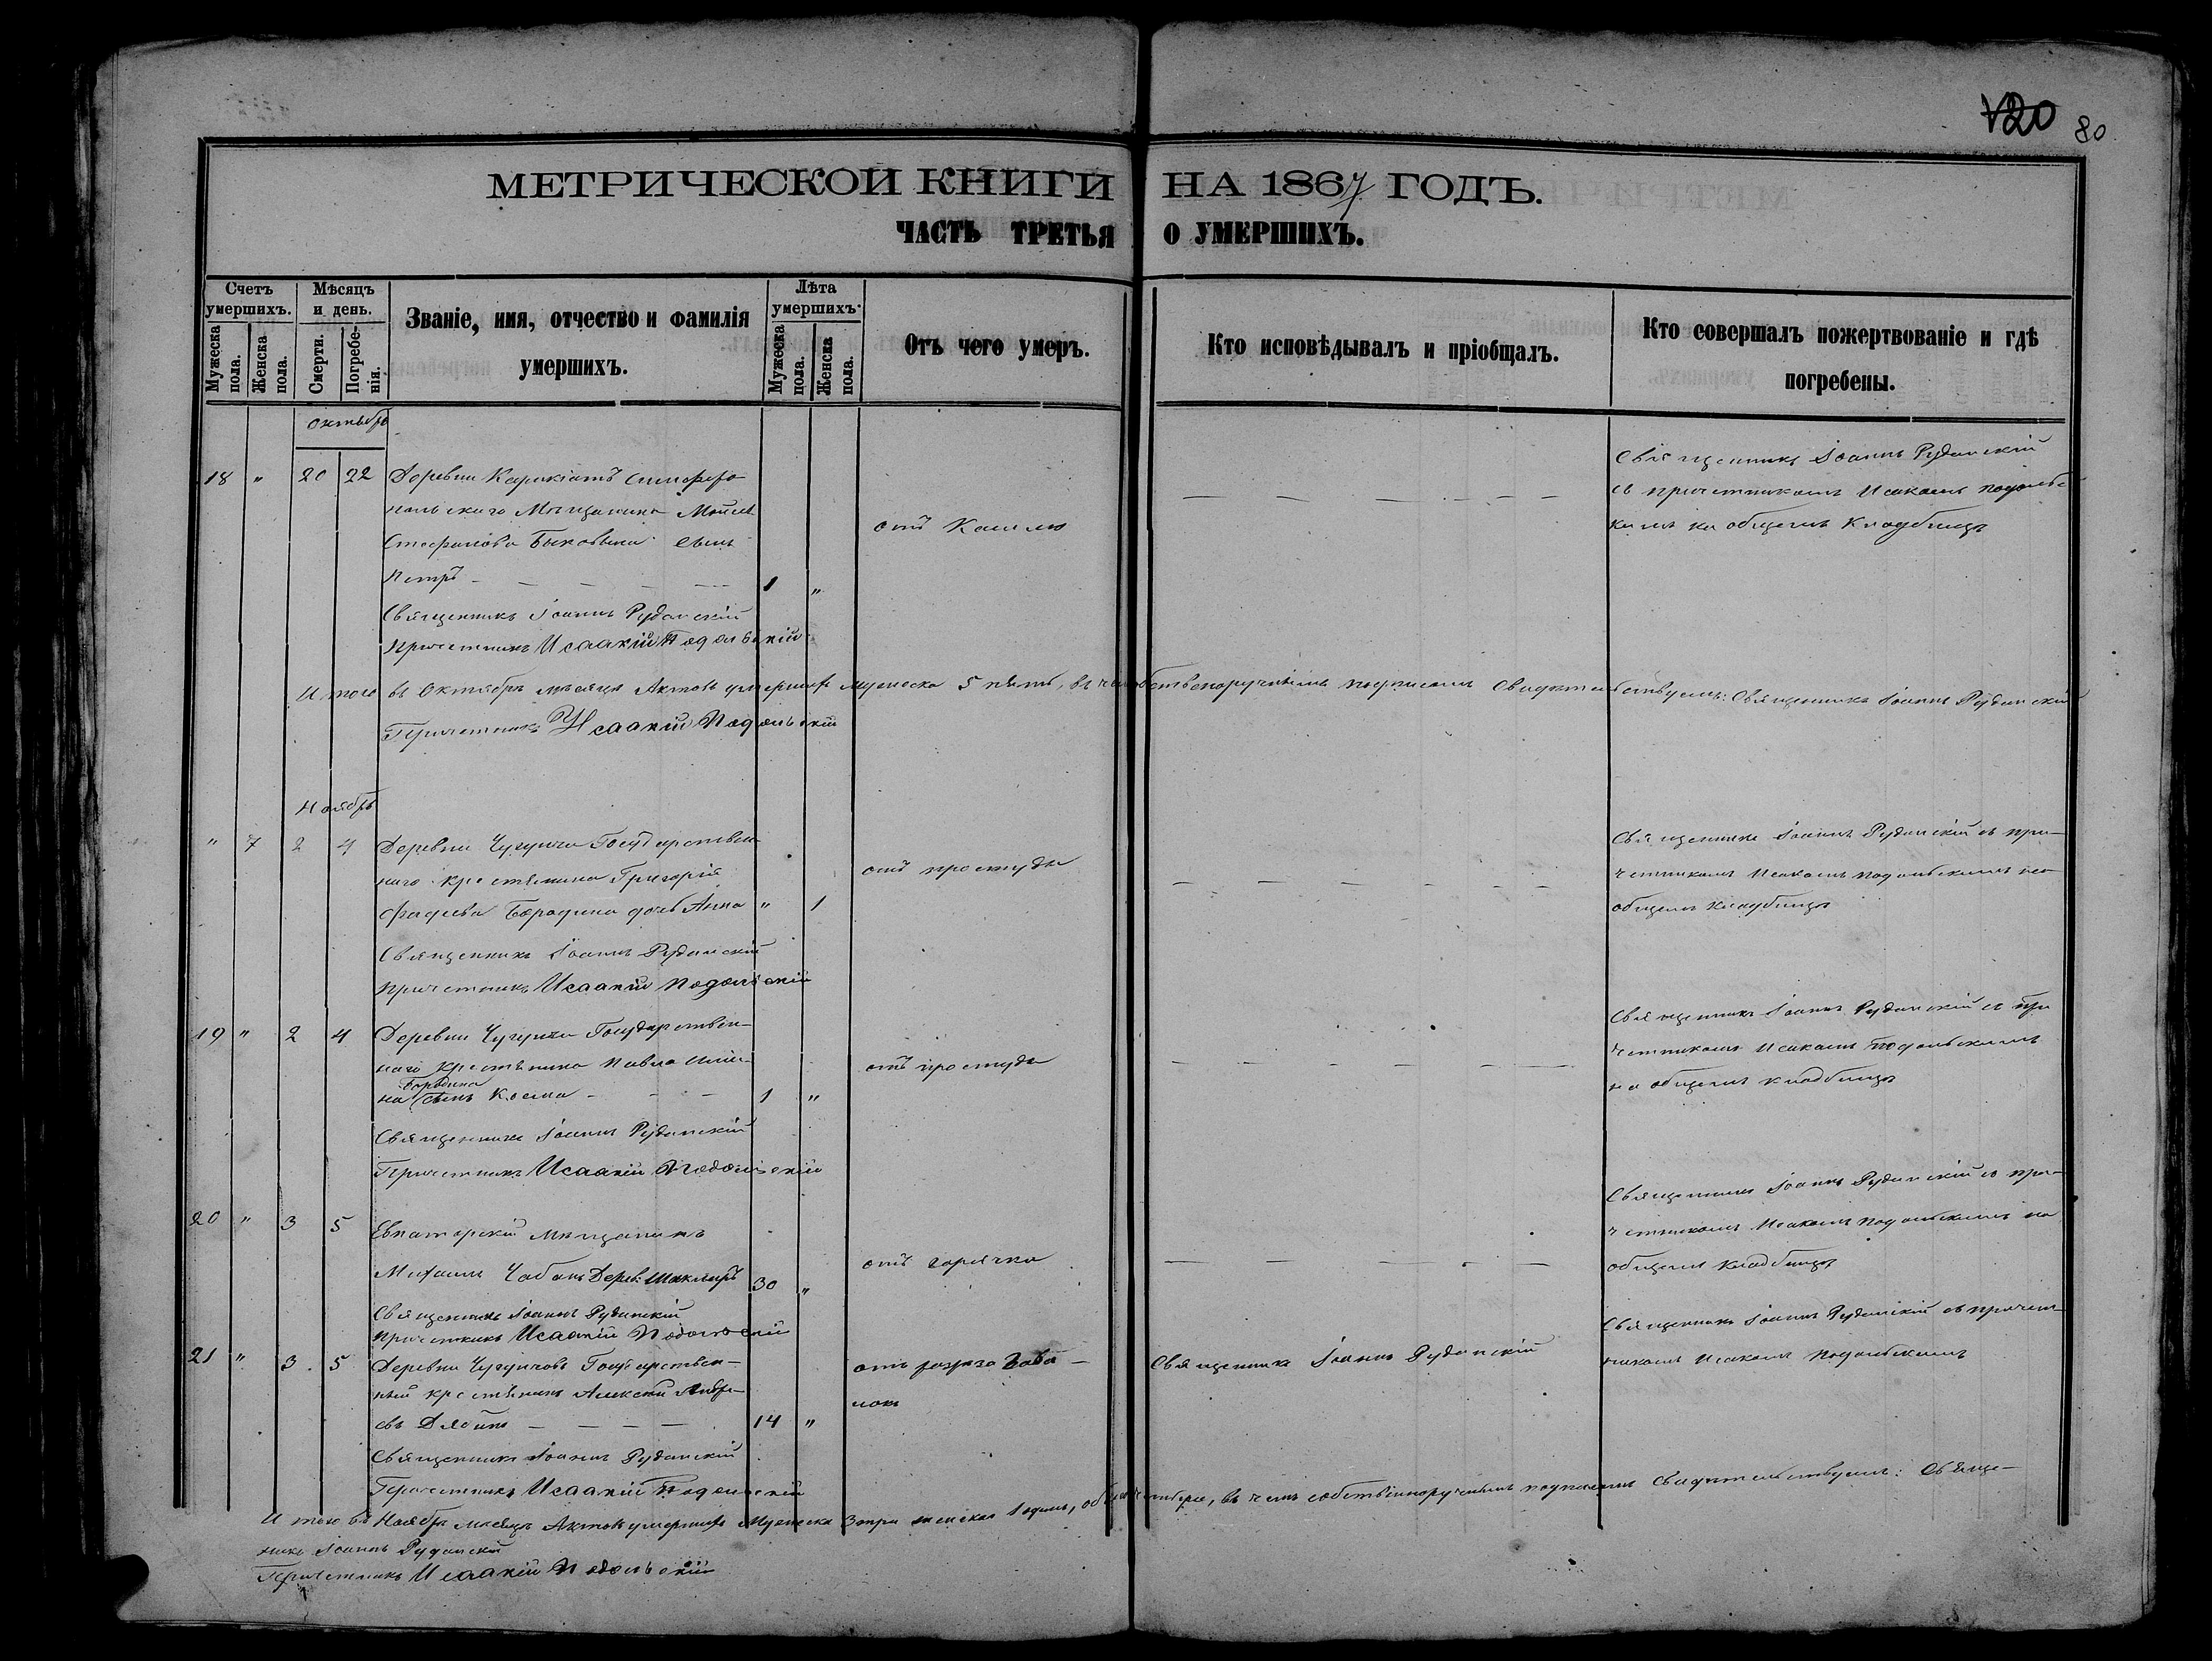 120 80
МЕТРИЧЕСКОЙ КНИГИ НА 1867 ГОДЪ.
ЧАСТЬ ТРЕТЬЯ О УМЕРШИХЪ.
Счетъ умершихъ.
Мужеска пола.
Женска пола.
Мѣсяцъ и день.
Смерти.
Погребенія.
Званіе, имя, отчество и фамилія
умершихъ.
Лѣта умершихъ.
Мужеска пола.
Женска пола.
Отъ чего умеръ.
Кто исповѣдывалъ и пріобщалъ.
Кто совершалъ пожертвованіе и гдѣ
погребены.
Октябрь
18 " 20 22 Деревни Симферо-
польскаго Мѣщанина
Стефанова сынъ
Петръ 1 "
отъ Кашлю
Священникъ Іоаннъ Руданскій
съ причетникомъ Исакомъ Подоль-
кимъ на общемъ Кладбищѣ
Священникъ Іоаннъ Руданскій
Причетникъ Исаакій Подольскій
Итого въ Октябрѣ мѣсяцѣ Актовъ умершихъ Мужеска 5 пять, въ чемъ собственоручнымъ подписомъ Свидѣтельствуемъ: Священникъ Іоаннъ Руданскій
Причетникъ Исаакій Подольскій
Ноябрь
" 7 2 4 Деревни Чугунчи Государствен-
наго крестянина Григорія
Фадѣева Бородина дочь Анна " 1
отъ простуды
Священникъ Іоаннъ Руданскій съ при-
четникомъ Исакомъ Подольскимъ на
общемъ Кладбищѣ
Священникъ Іоаннъ Руданскій
Причетникъ Исаакій Подольскій
19 " 2 4 Деревни Чугунчи Государствен-
наго Крестянина Павла Ильи-
Бородина
на сынъ Косма 1 "
отъ простуды
Священникъ Іоаннъ Руданскій съ при
четникомъ Исакомъ Подольскимъ
на общемъ кладбищѣ
Священникъ Іоаннъ Руданскій
Причетникъ Исаакій Подольскій
20 " 3 5 Евпаторскій мѣщанинъ
Михаилъ Чабанъ Дерев: 30 "
отъ горячки
Священникъ Іоаннъ Руданскій съ при-
четникомъ Исакомъ Подольскимъ на
общемъ Кладбищѣ
Священникъ Іоаннъ Руданскій
Причетникъ Исаакій Подольскій
21 " 3 5 Деревни Государствен-
ный крестянинъ Алексѣй Андре-
евъ 14 "
отъ
Священникъ Іоаннъ Руданскій
Священникъ Іоаннъ Руданскій съ причет-
никомъ Исакомъ Подольскимъ
Священникъ Іоаннъ Руданскій
Причетникъ Исаакій Подольскій
Итого въ Ноябрѣ мѣсяцѣ Актовъ умершихъ Мужеска 3 три женска 1 одинъ, четыре, въ чемъ собственноручнымъ подписомъ Свидѣтельствуемъ: Священ-
никъ Іоаннъ Руданскій
Причетникъ Исаакій Подольскій